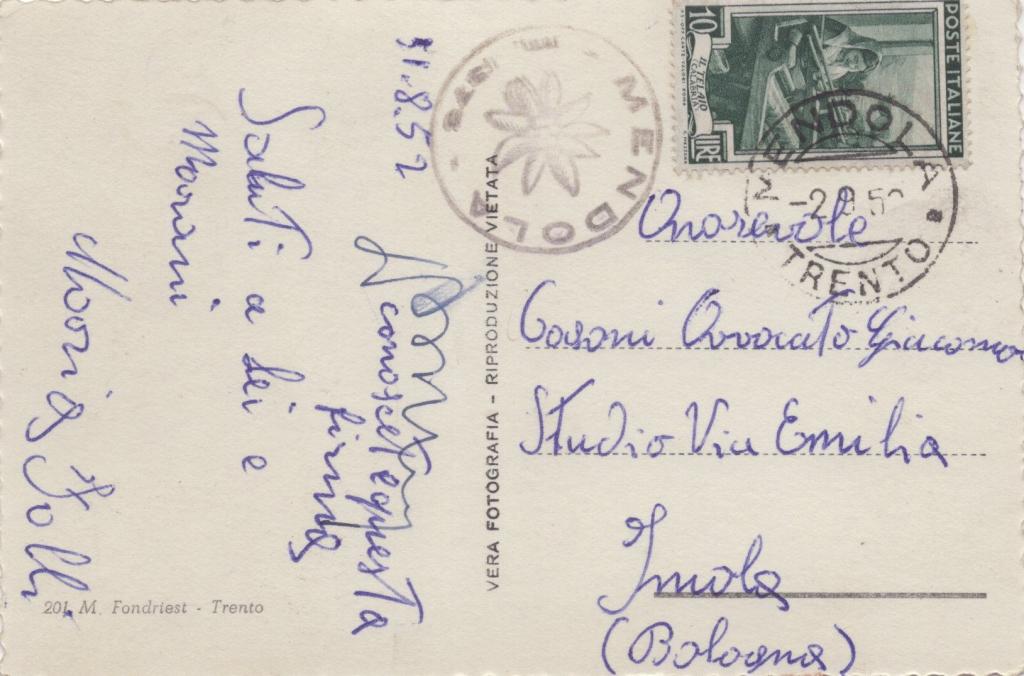 31.8.52
Saluti a Lei e
Mariani
Maria Folli
conoscete questa
firma
POSTE ITALIANE
10
LIRE
IL TELAIO
CALABRIA
MENDOLA
TRENTO
-2.9.5
MENDOLA
Onorevole
Casoni Avvocato Giacomo
Studio Via Emilia
Imola
(Bologna)
VERA FOTOGRAFIA - RIPRODUZIONE VIETATA
201 M. Fondriest - Trento